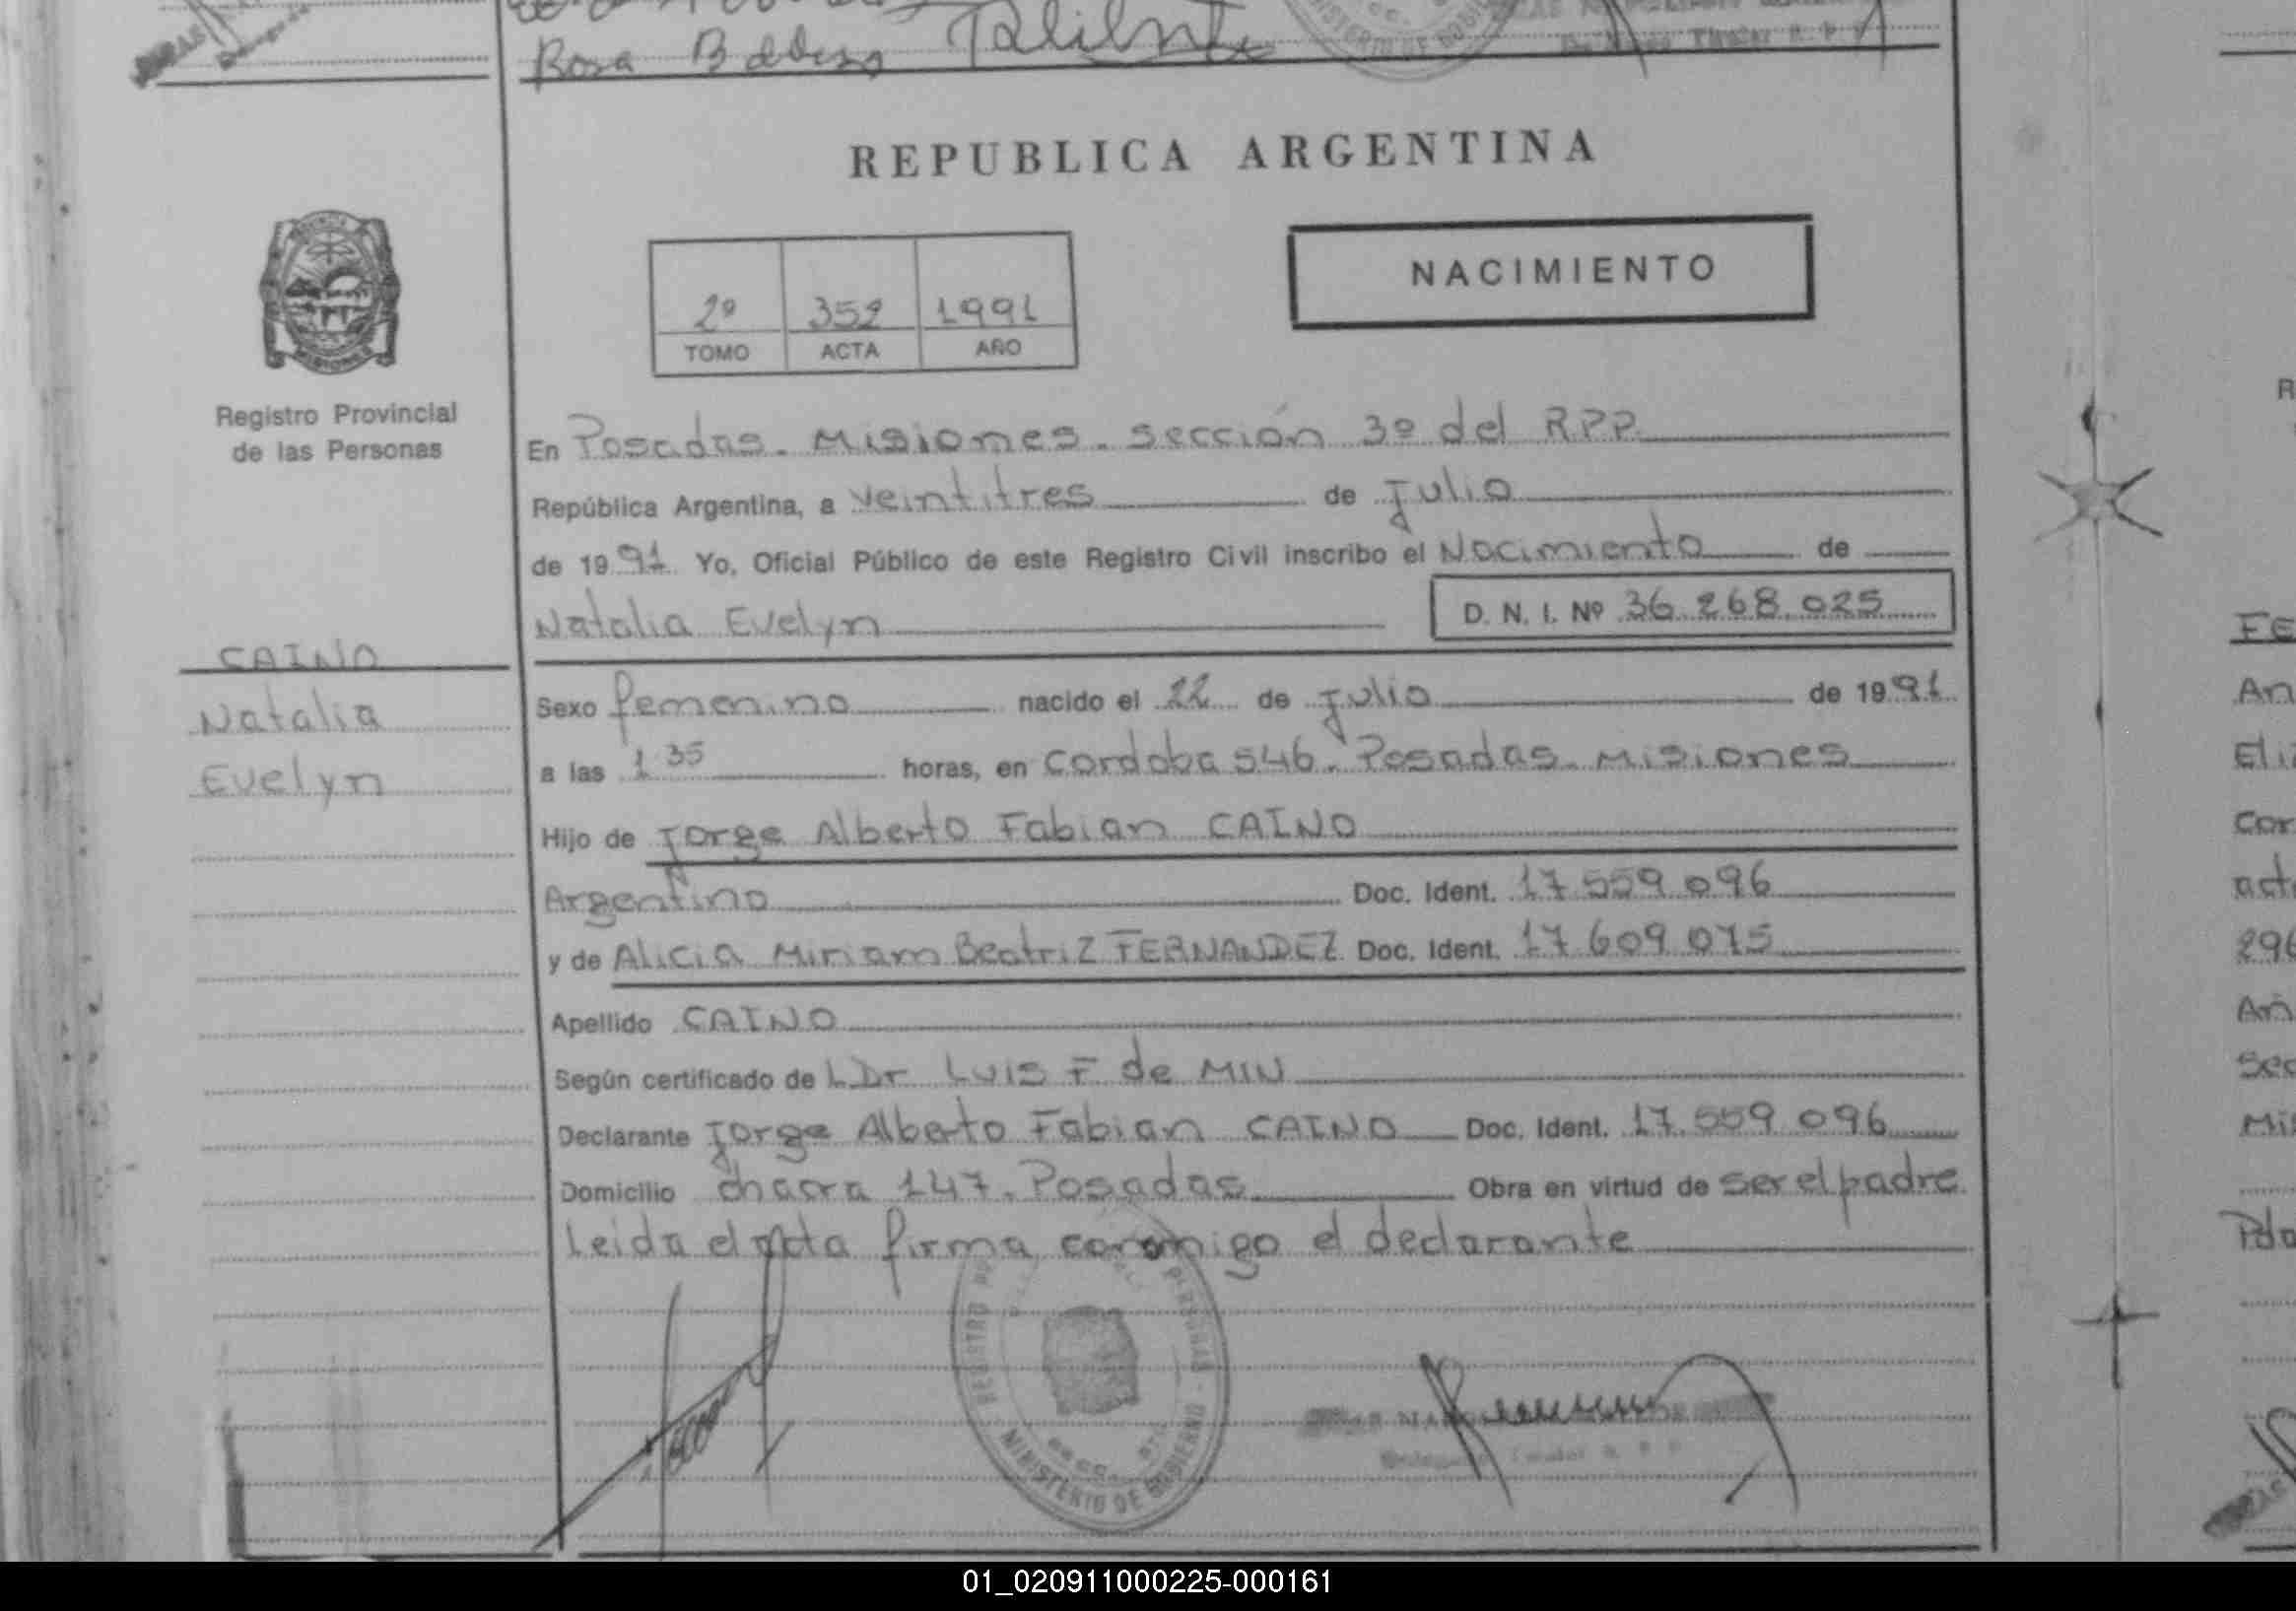 Rosa
REPUBLICA ARGENTINA
NACIMIENTO
2º 352 1991
TOMO ACTA AÑO
Registro Provincial
de las Personas
En Posadas. Misiones. sección 3º del RPP.
República Argentina, a veintitres de Julio
de 1991 Yo, Oficial Público de este Registro Civil inscribo el Nacimiento de
Natalia Evelyn D. N. I. Nº 36.268.025
CAINO
Natalia
Evelyn
Sexo femenino nacido el 22 de Julio de 1991
a las 1 35 horas, en Cordoba 546. Posadas. Misiones
Hijo de Jorge Alberto Fabian CAINO
Argentino Doc. Ident. 17.559.096
y de Alicia Miriam Beatriz FERNANDEZ Doc. Ident. 17.609.075
Apellido CAINO
Según certificado de L Dr Luis F de MIN
Declarante Jorge Alberto Fabian CAINO Doc. Ident. 17.559.096
Domicilio chacra 147. Posadas Obra en virtud de ser el padre
Leida el acta firma conmigo el declarante
MINISTERIO DE GOBIERNO
01_020911000225-000161